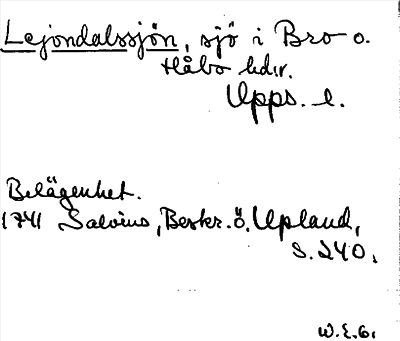 Lejondalssjön, sjö i Bro o.
Håbo hdr.
Upps. l.
Belägenhet.
1741 Salvius, Beskr. ö. Upland,
s. 240.
W.E.G.